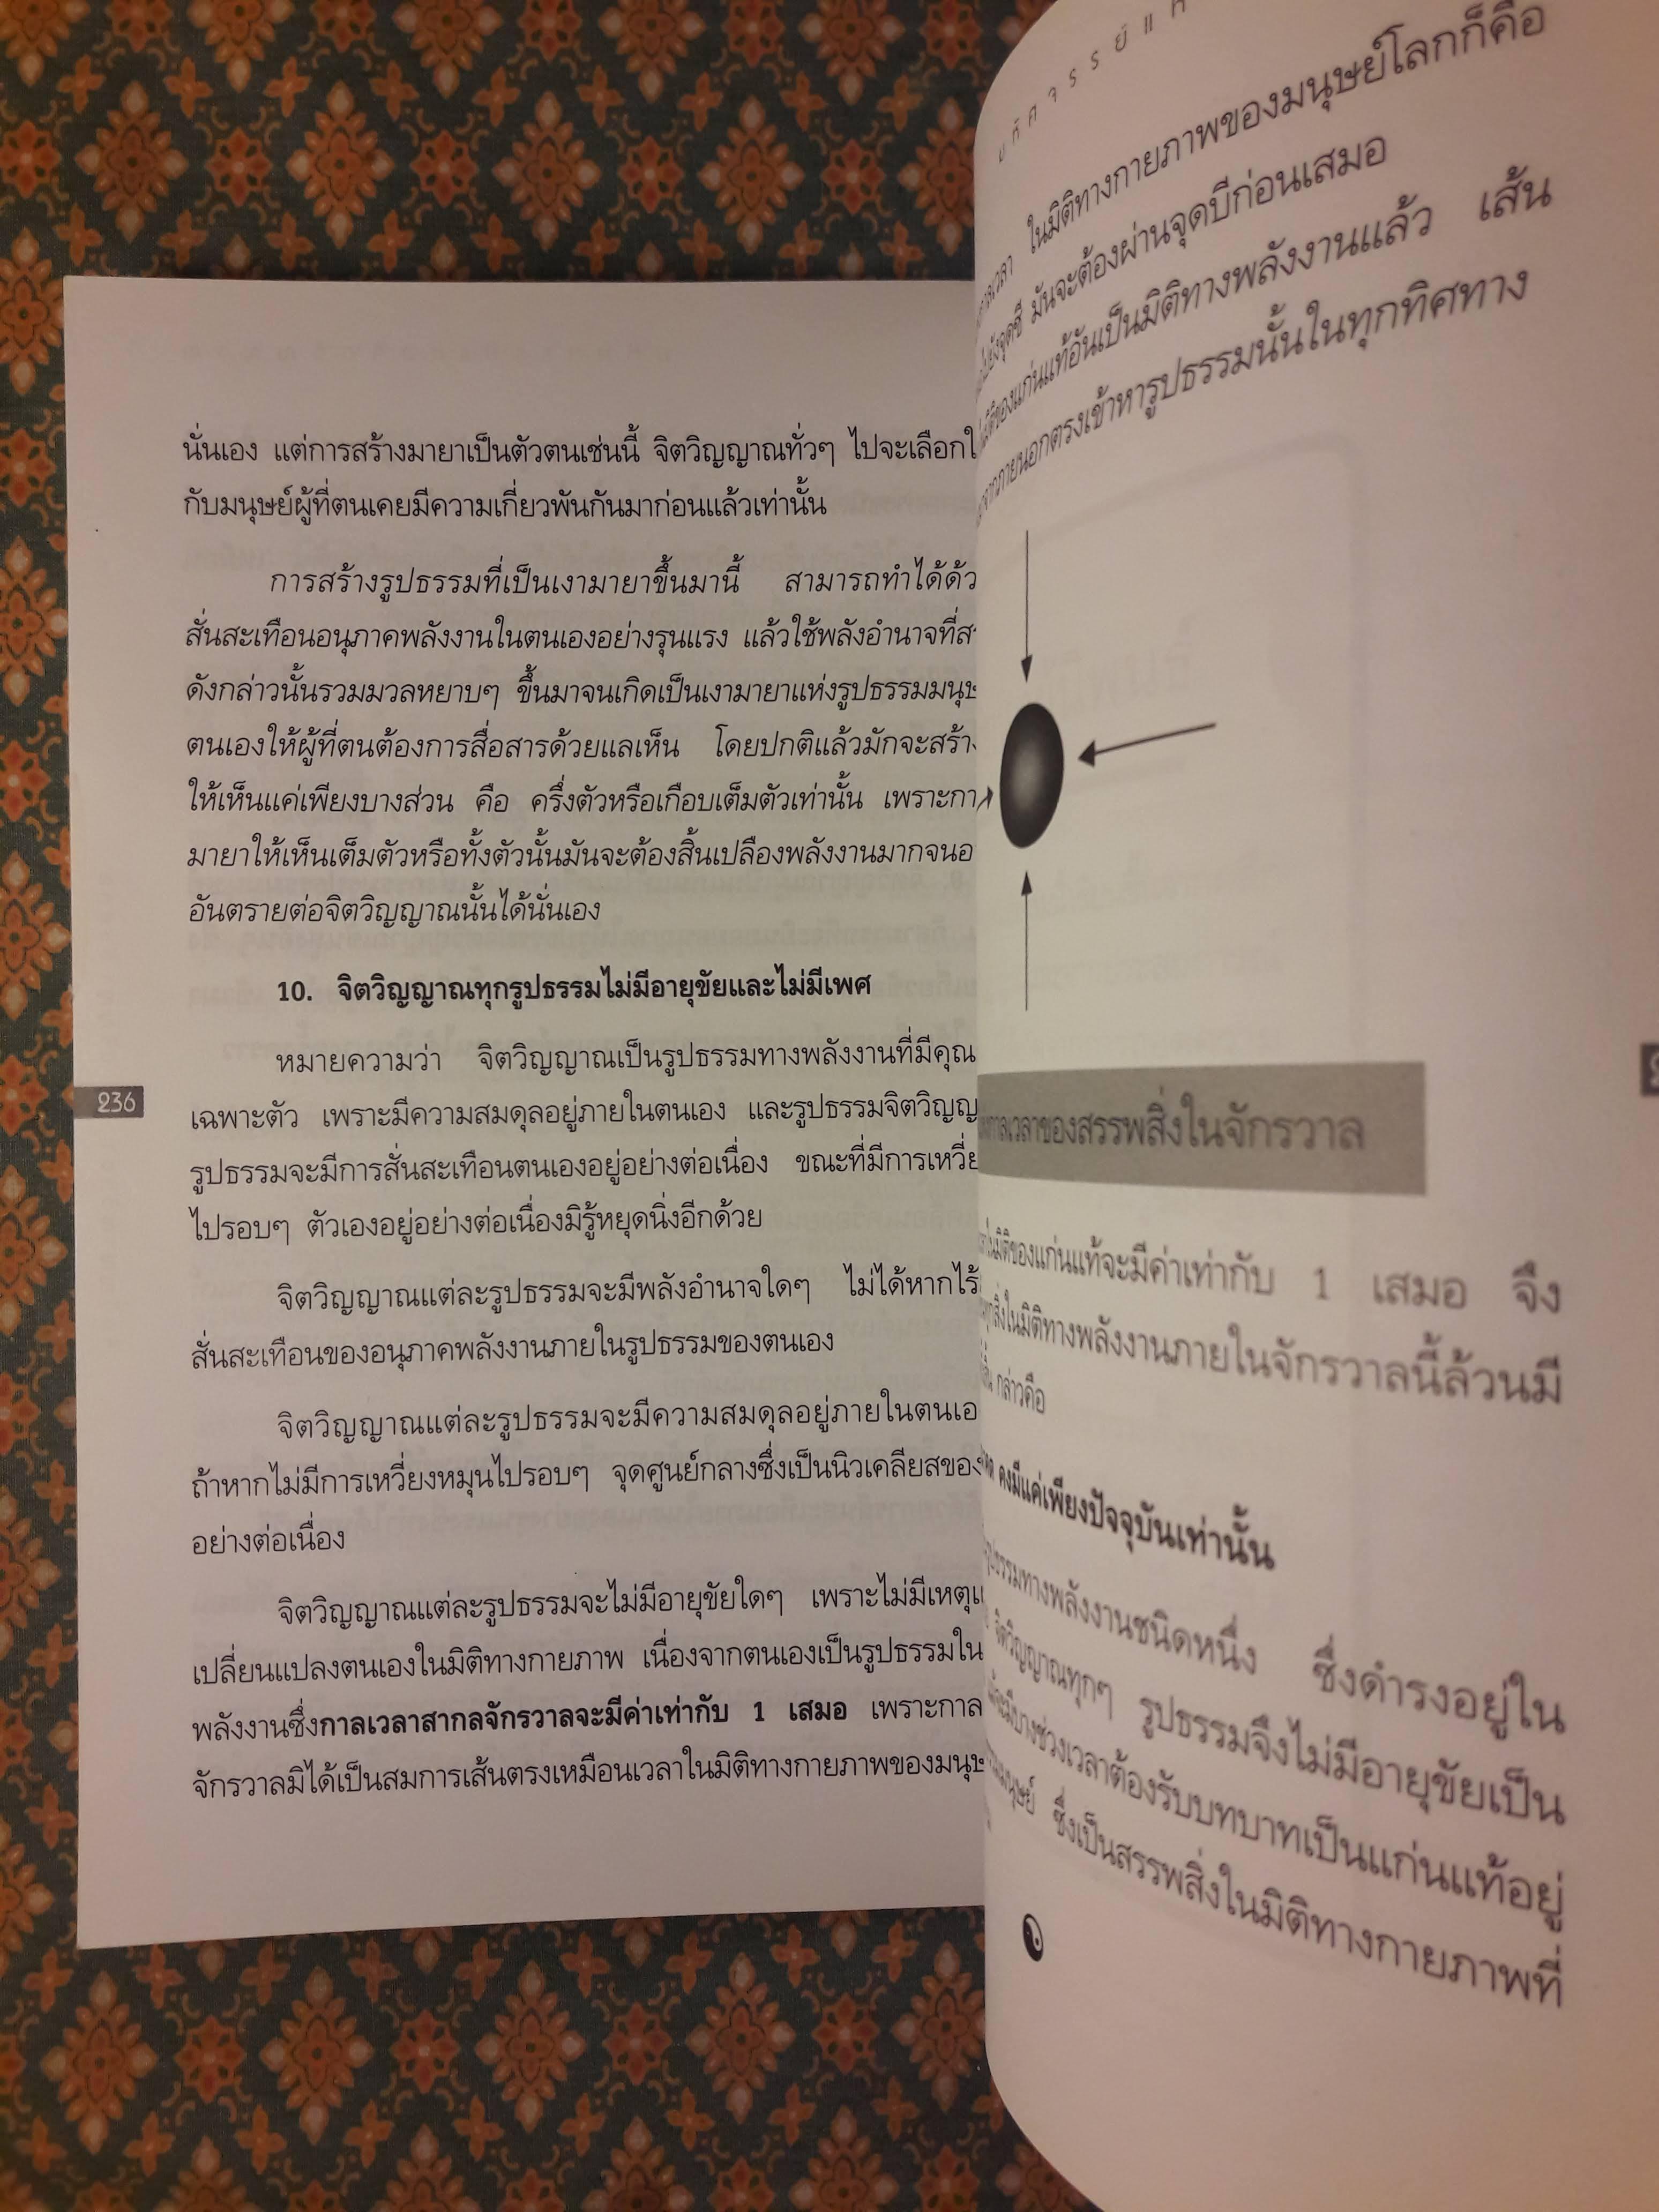 นั่นเอง แต่การสร้างมายาเป็นตัวตนเช่นนี้ จิตวิญญาณทั่วๆ ไปจะเลือกใ
กับมนุษย์ผู้ที่ตนเคยมีความเกี่ยวพันกันมาก่อนแล้วเท่านั้น
การสร้างรูปธรรมที่เป็นเงามายาขึ้นมานี้ สามารถทำได้ด้ว
สั่นสะเทือนอนุภาคพลังงานในตนเองอย่างรุนแรง แล้วใช้พลังอำนาจที่
ดังกล่าวนั้นรวมมวลหยาบๆ ขึ้นมาจนเกิดเป็นเงามายาแห่งรูปธรรม
ตนเองให้ผู้ที่ตนต้องการสื่อสารด้วยแลเห็น โดยปกติแล้วมักจะสร้าง
ให้เห็นแค่เพียงบางส่วน คือ ครึ่งตัวหรือเกือบเต็มตัวเท่านั้น เพราะกา
มายาให้เห็นเต็มตัวหรือทั้งตัวนั้นมันจะต้องสิ้นเปลืองพลังงานมากจนอ
อันตรายต่อจิตวิญญาณนั้นได้นั่นเอง
10. จิตวิญญาณทุกรูปธรรมไม่มีอายุขัยและไม่มีเพศ
หมายความว่า จิตวิญญาณเป็นรูปธรรมทางพลังงานที่มีคุณ
เฉพาะตัว เพราะมีความสมดุลอยู่ภายในตนเอง และรูปธรรมจิตวิญญ
รูปธรรมจะมีการสั่นสะเทือนตนเองอยู่อย่างต่อเนื่อง ขณะที่มีการเหวี่ย
ไปรอบๆ ตัวเองอยู่อย่างต่อเนื่องมิรู้หยุดนิ่งอีกด้วย
จิตวิญญาณแต่ละรูปธรรมจะมีพลังอำนาจใดๆ ไม่ได้หากไร้
สั่นสะเทือนของอนุภาคพลังงานภายในรูปธรรมของตนเอง
จิตวิญญาณแต่ละรูปธรรมจะมีความสมดุลอยู่ภายในตนเอ
ถ้าหากไม่มีการเหวี่ยงหมุนไปรอบๆ จุดศูนย์กลางซึ่งเป็นนิวเคลียสของ
อย่างต่อเนื่อง
จิตวิญญาณแต่ละรูปธรรมจะไม่มีอายุขัยใดๆ เพราะไม่มีเหตุ
เปลี่ยนแปลงตนเองในมิติทางกายภาพ เนื่องจากตนเองเป็นรูปธรรมใน
พลังงานซึ่งกาลเวลาสากลจักรวาลจะมีค่าเท่ากับ 1 เสมอ เพราะกาล
จักรวาลมิได้เป็นสมการเส้นตรงเหมือนเวลาในมิติทางกายภาพของมนุษ
236
ในมิติทางกายภาพของมนุษย์โลกก็คือ
มันจะต้องผ่านจุดบีก่อนเสมอ
ของแก่นแท้อันเป็นมิติทางพลังงานแล้ว เส้น
จากภายนอกตรงเข้าหารูปธรรมนั้นในทุกทิศทาง
กาลเวลาของสรรพสิ่งในจักรวาล
ในมิติของแก่นแท้จะมีค่าเท่ากับ 1 เสมอ จึง
ทุกสิ่งในมิติทางพลังงานภายในจักรวาลนี้ล้วนมี
กล่าวคือ
คงมีแค่เพียงปัจจุบันเท่านั้น
รูปธรรมทางพลังงานชนิดหนึ่ง ซึ่งดำรงอยู่ใน
จิตวิญญาณทุกๆ รูปธรรมจึงไม่มีอายุขัยเป็น
จะมีบางช่วงเวลาต้องรับบทบาทเป็นแก่นแท้อยู่
มนุษย์ ซึ่งเป็นสรรพสิ่งในมิติทางกายภาพที่